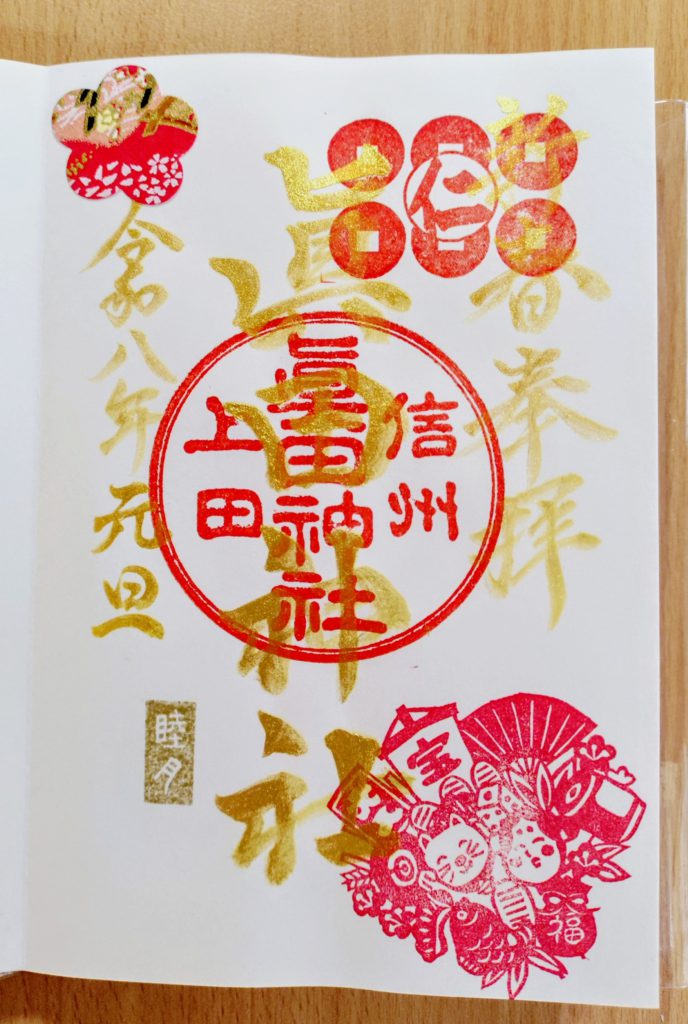 新春奉拝
仁
眞田神社
信州
眞田神社
上田
令和八年元旦
睦月
宝
福